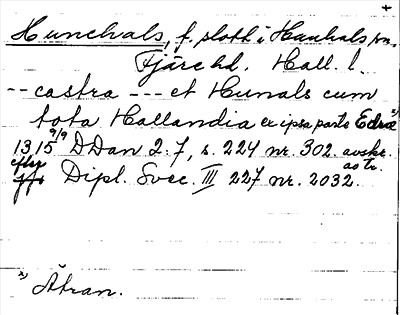 Hunehals, f. slott i Hanhals sn.
Fjäre hd. Hall. l.
-- castra --- et Hunals cum
tota Hallandia ex ipsa parte Edræ x)
1315 9/9 DDan 2:7, s. 224 nr. 302 avskr.
efter tr. Dipl. Svec. III 227 nr. 2032.
x) Ätran.